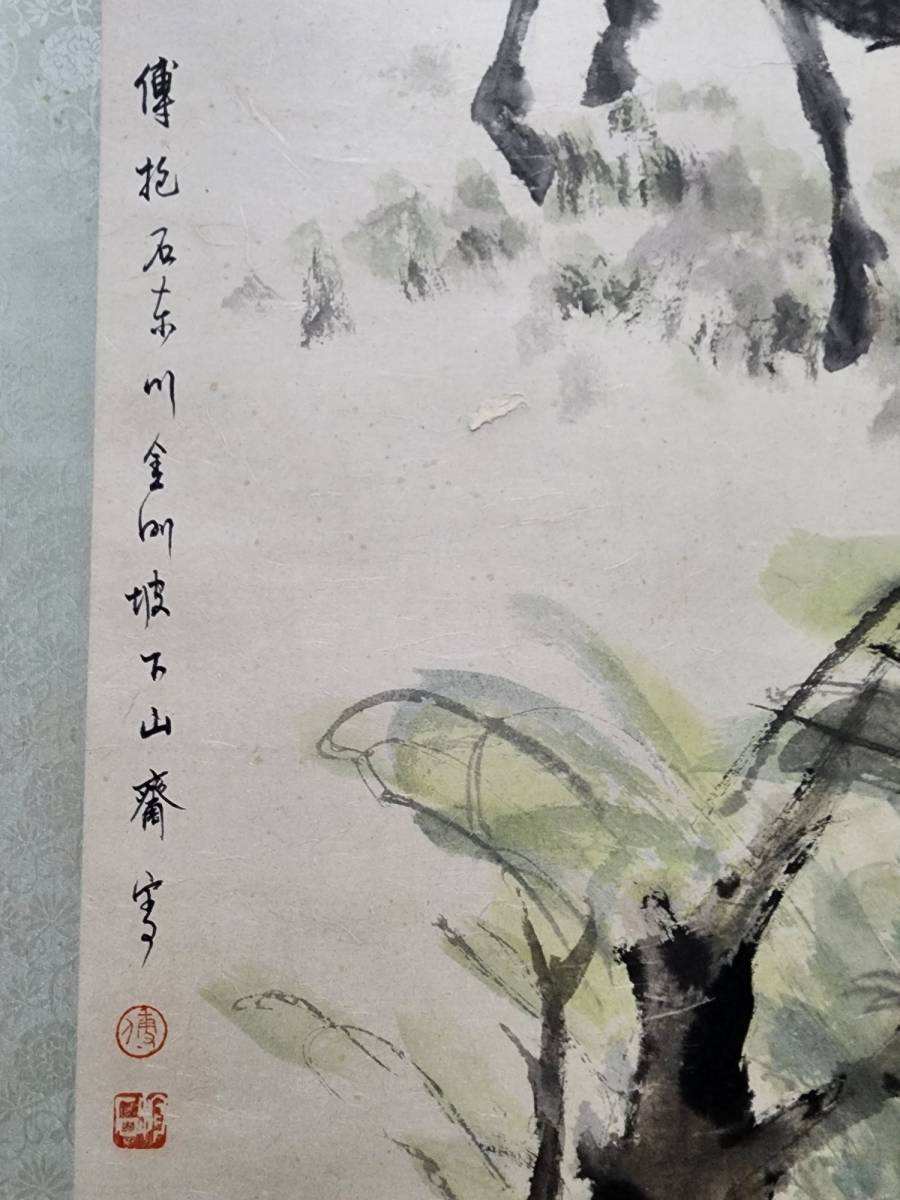 傅抱石东川金刚坡下山斋写
傅